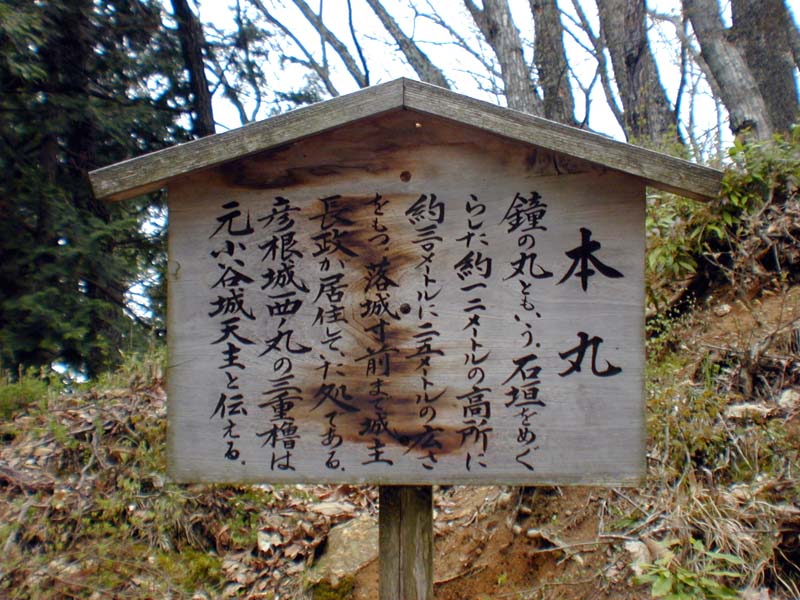 本丸
鐘の丸ともいう。石垣をめぐ
らした約一二メートルの高所に
約三〇メートルに二五メートルの広さ
をもつ 落城寸前まで城主
長政が居住していた処である。
彦根城西ノ丸の三重櫓は
元小谷城天主と伝える。